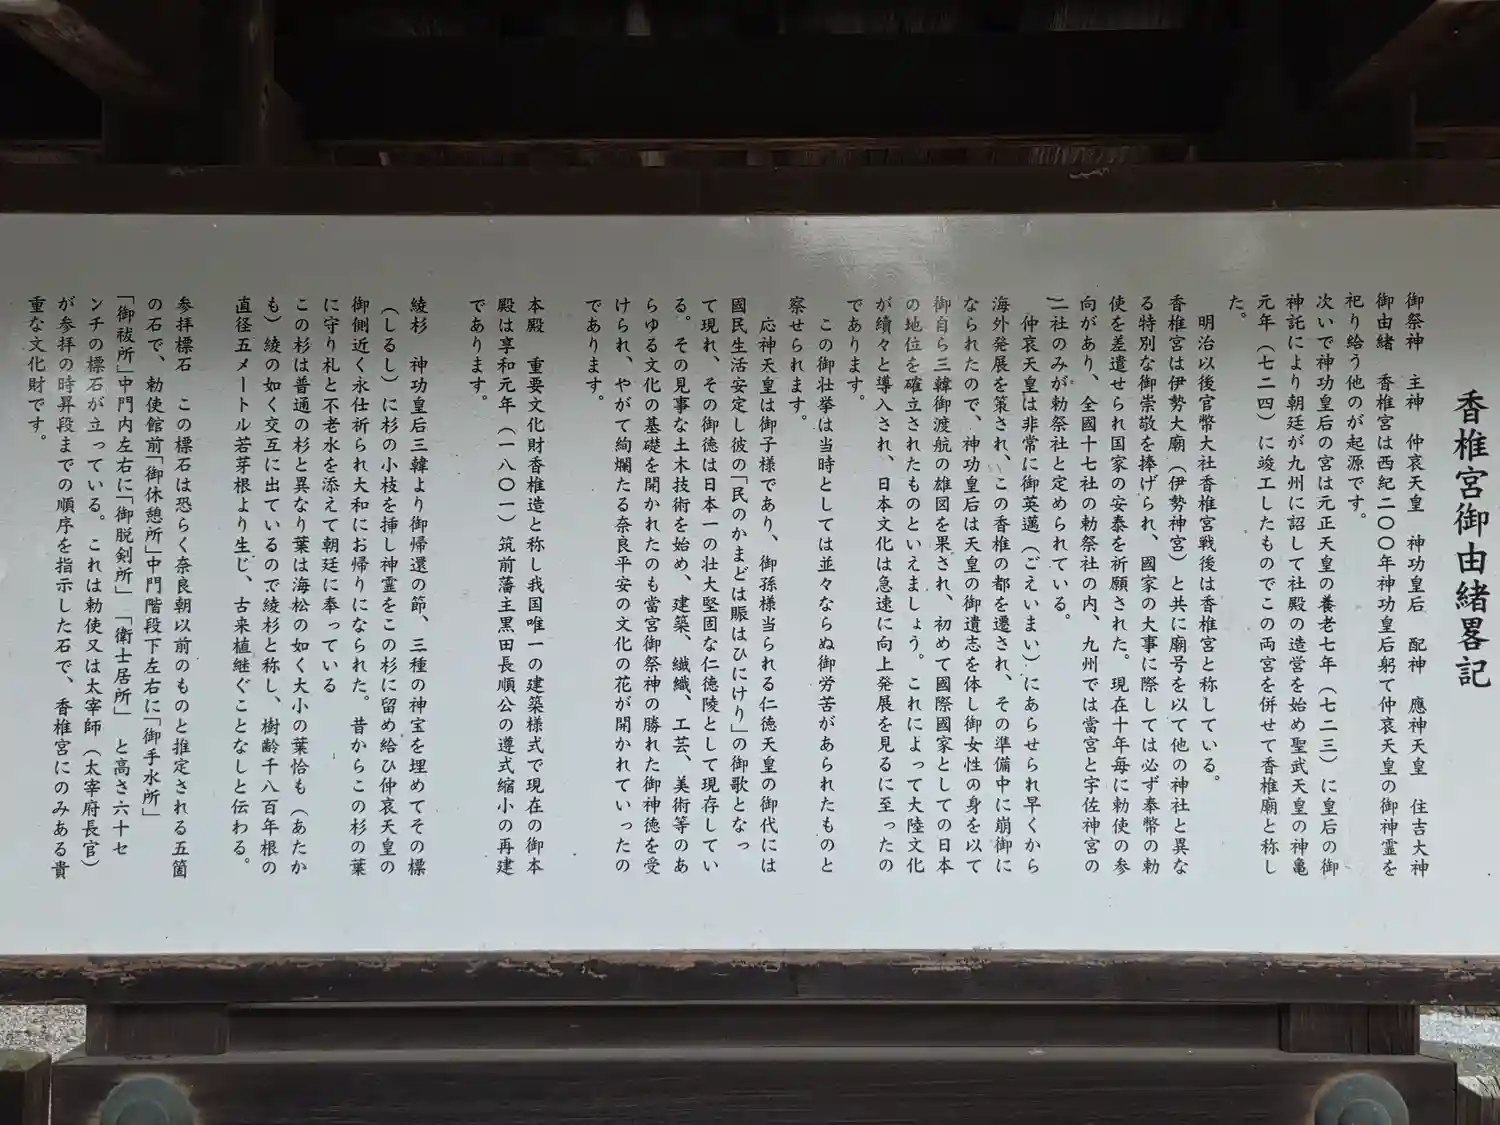 香椎宮御由緒畧記
御祭神　主神　仲哀天皇　神功皇后　配神　應神天皇　住吉大神
御由緒　香椎宮は西紀二〇〇年神功皇后躬て仲哀天皇の御神霊を
祀り給う他のが起源です。
次いで神功皇后の宮は元正天皇の養老七年（七二三）に皇后の御
神託により朝廷が九州に詔して社殿の造営を始め聖武天皇の神亀
元年（七二四）に竣工したものでこの両宮を併せて香椎廟と称し
た。
明治以後官幣大社香椎宮戦後は香椎宮と称している。
香椎宮は伊勢大廟（伊勢神宮）と共に廟号を以て他の神社と異な
る特別な御崇敬を捧げられ、國家の大事に際しては必ず奉幣の勅
使を差遣せられ国家の安泰を祈願された。現在十年毎に勅使の参
向があり、全国十七社の勅祭社の内、九州では當宮と宇佐神宮の
二社のみが勅祭社と定められている。
仲哀天皇は非常に御英邁（ごえいまい）にあらせられ早くから
海外発展を策され、この香椎の都を遷され、その準備中に崩御に
なられたので、神功皇后は天皇の御遺志を体し御女性の身を以て
御自ら三韓御渡航の雄図を果され、初めて國際國家としての日本
の地位を確立されたものといえましょう。これによって大陸文化
が續々と導入され、日本文化は急速に向上発展を見るに至ったの
であります。
この御壮挙は当時としては並々ならぬ御労苦があられたものと
察せられます。
応神天皇は御子様であり、御孫様当られる仁徳天皇の御代には
國民生活安定し彼の「民のかまどは賑はひにけり」の御歌となっ
て現れ、その御徳は日本一の壮大堅固な仁徳陵として現存してい
る。その見事な土木技術を始め、建築、繊織、工芸、美術等のあ
らゆる文化の基礎を開かれたのも當宮御祭神の勝れた御神徳を受
けられ、やがて絢爛たる奈良平安の文化の花が開かれていったの
であります。
本殿　重要文化財香椎造と称し我国唯一の建築様式で現在の御本
殿は享和元年（一八〇一）筑前藩主黒田長順公の遵式縮小の再建
であります。
綾杉　神功皇后三韓より御帰還の節、三種の神宝を埋めてその標
（しるし）に杉の小枝を挿し神霊をこの杉に留め給ひ仲哀天皇の
御側近く永仕祈られ大和にお帰りになられた。昔からこの杉の葉
に守り札と不老水を添えて朝廷に奉っている
この杉は普通の杉と異なり葉は海松の如く大小の葉恰も（あたか
も）綾の如く交互に出ているので綾杉と称し、樹齢千八百年根の
直径五メートル若芽根より生じ、古来植継ぐことなしと伝わる。
参拝標石　この標石は恐らく奈良朝以前のものと推定される五箇
の石で、勅使館前「御休憩所」中門階段下左右に「御手水所」
「御祓所」中門内左右に「御脱剣所」「衛士居所」　と高さ六十セ
ンチの標石が立っている。これは勅使又は太宰師（太宰府長官）
が参拝の時昇段までの順序を指示した石で、香椎宮にのみある貴
重な文化財です。